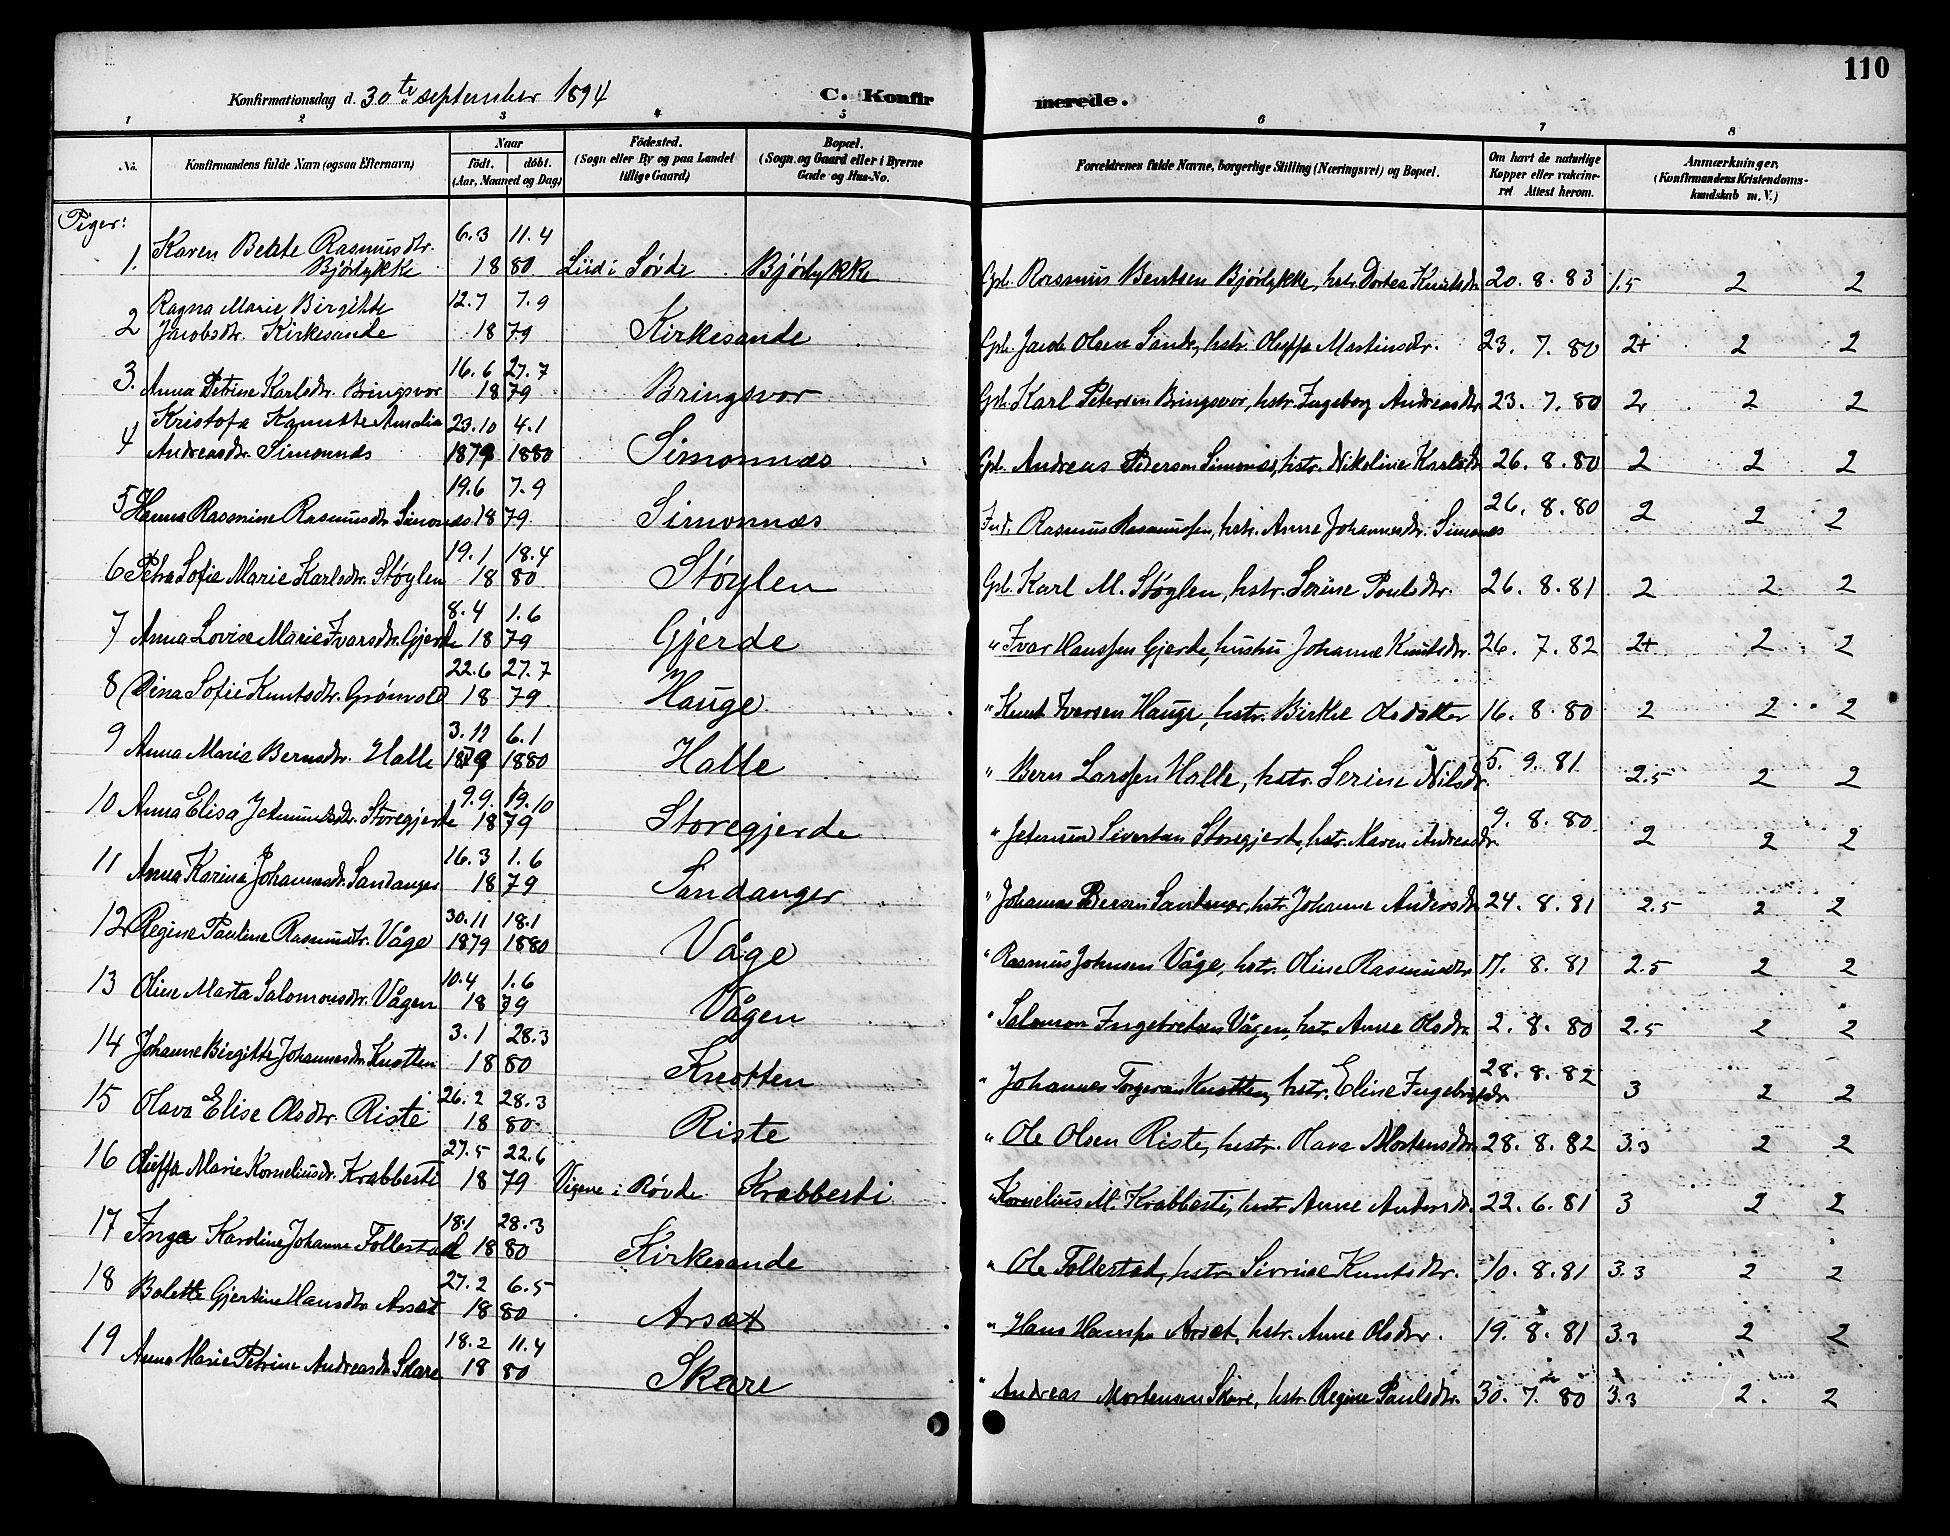 110
Konfirmationsdag d. 30te september 1894
C. Konfirmerede.
1 2 3 4 5 6 7 8
No. Konfirmandens fulde Navn (ogsaa Efternavn) Naar födt. döbt. (Aar, Maaned og Dag) Födested. (Sogn eller By og paa Landet tillige Gaard) Bopæl. (Sogn og Gaard eller i Byerne Gade og Hus-No. Forældrenes fulde Navne, borgerlige Stilling (Næringsvei) og Bopæl. Om havt de naturlige Kopper eller vakcineret Attest herom. Anmærkninger. (Konfirmandens Kristendomskundskab m. V.)
Piger:
1. Karen Beate Rasmusdtr. Bjørlykke 6.3 11.4 1880 Liid i Søvde Bjørlykke Gbl. Rasmus Bentsen Bjørlykke, hstr. Dortea Knutsdtr. 20.8.83 1.5 2 2
2 Ragna Marie Birgitte Jacobsdtr. Kirkesande 12.7 7.9 1879 Kirkesande Gbl. Jacob Olsen Sande, hstr. Oluffa Martinsdtr. 23.7.80 2+ 2 2
3. Anna Petrine Karlsdtr. Bringsvor 16.6 27.7 1879 Bringsvor Gbl. Karl Petersen Bringsvor, hstr. Ingeborg Andreasdtr 23.7.80 2 2 2
4 Kristofa Knutte Amalia Andreasdtr. Simonnæs 23.10 4.1 1879 1880 Simonnæs Gbl. Andreas Pedersen Simonnæs, hstr. Nikoline Karlsdtr 26.8.80 2 2 2
5 Hanna Rasmine Rasmusdtr. Simonnæs 19.6 7.9 1879 Simonnæs Ind. Rasmus Rasmussen, hstr. Anne Johannesdtr. Simonnæs 26.8.80 2 2 2
6 Petra Sofie Marie Karlsdtr. Støylen 19.1 18.4 1880 Støylen Gbl. Karl M. Støylen, hstr. Serine Poulsdtr. 26.8.81 2 2 2
7 Anna Lovise Marie Ivarsdtr. Gjerde 8.4 1.6 1879 Gjerde " Ivar Hanssen Gjerde, hustru Johanne Knutsdtr. 26.7.82 2+ 2 2
8 Dina Sofie Knutsdtr. Grønvold 22.6 27.7 1879 Hauge " Knut Iversen Hauge, hstr. Birthe Olsdatter 16.8.80 2 2 2
9 Anna Marie Bernsdtr. Halle 3.11 6.1 1879 1880 Halle " Bern Larssen Halle, hstr. Serine Nilsdtr. 5.9.81 2.5 2 2
10 Anna Elisa Jetmundsdtr. Storegjerde 9.9. 19.10 1879 Storegjerde " Jetmund Sivertsen Storegjerde, hstr. Maren Andreasdtr. 9.8.80 2 2 2
11 Anna Karina Johannesdtr. Sandanger 16.3 1.6 1879 Sandanger " Johannes Pedersen Sandanger, hstr. Johanne Andersdtr. 24.8.81 2.5 2 2
12 Regine Pauline Rasmusdtr. Våge 30.11 18.1 1879 1880 Våge " Rasmus Johnsen Våge, hstr. Oline Rasmusdtr 17.8.81 2.5 2 2
13 Oline Marta Salomonsdtr. Vågen 10.4 1.6 1879 Vågen " Salomon Ingebretsen Vågen, hstr. Anne Olsdtr. 2.8.80 2.5 2 2
14 Johanne Birgitte Johannesdtr. Knotten 3.1 28.3 1880 Knotten " Johannes Torgersen Knotten, hstr. Eline Ingebrigtsdtr. 28.8.82 3 2 2
15 Olava Elise Olsdtr. Riste 26.2 28.3 1880 Riste " Ole Olsen Riste, hustr. Olava Mortensdtr. 28.8.82 3.3 2 2
16 Oluffa Marie Korneliusdtr. Krabbesti 27.5 22.6 1879 Vigene i Røvde Krabbesti " Kornelius M. Krabbesti, hustr Anne Andersdtr. 22.6.81 3 2 2
17 Inga Karoline Johanne Follestad 18.1 28.3 1880 Kirkesande " Ole Follestad, hstr Sivrine Knutsdtr. 10.8.81 3.3 2 2
18 Bolette Gjertine Hansdtr. Årsæt 27.2 6.5 1880 Årsæt " Hans Hanssen Årsæt, hstr. Anne Olsdtr. 19.8.81 3.3 2 2
19 Anna Marie Petrine Andreasdtr. Skare 18.2 11.4 1880 Skare " Andreas Mortensen Skare, hstr. Regine Paulsdtr. 30.7.80 3.3 2. 2